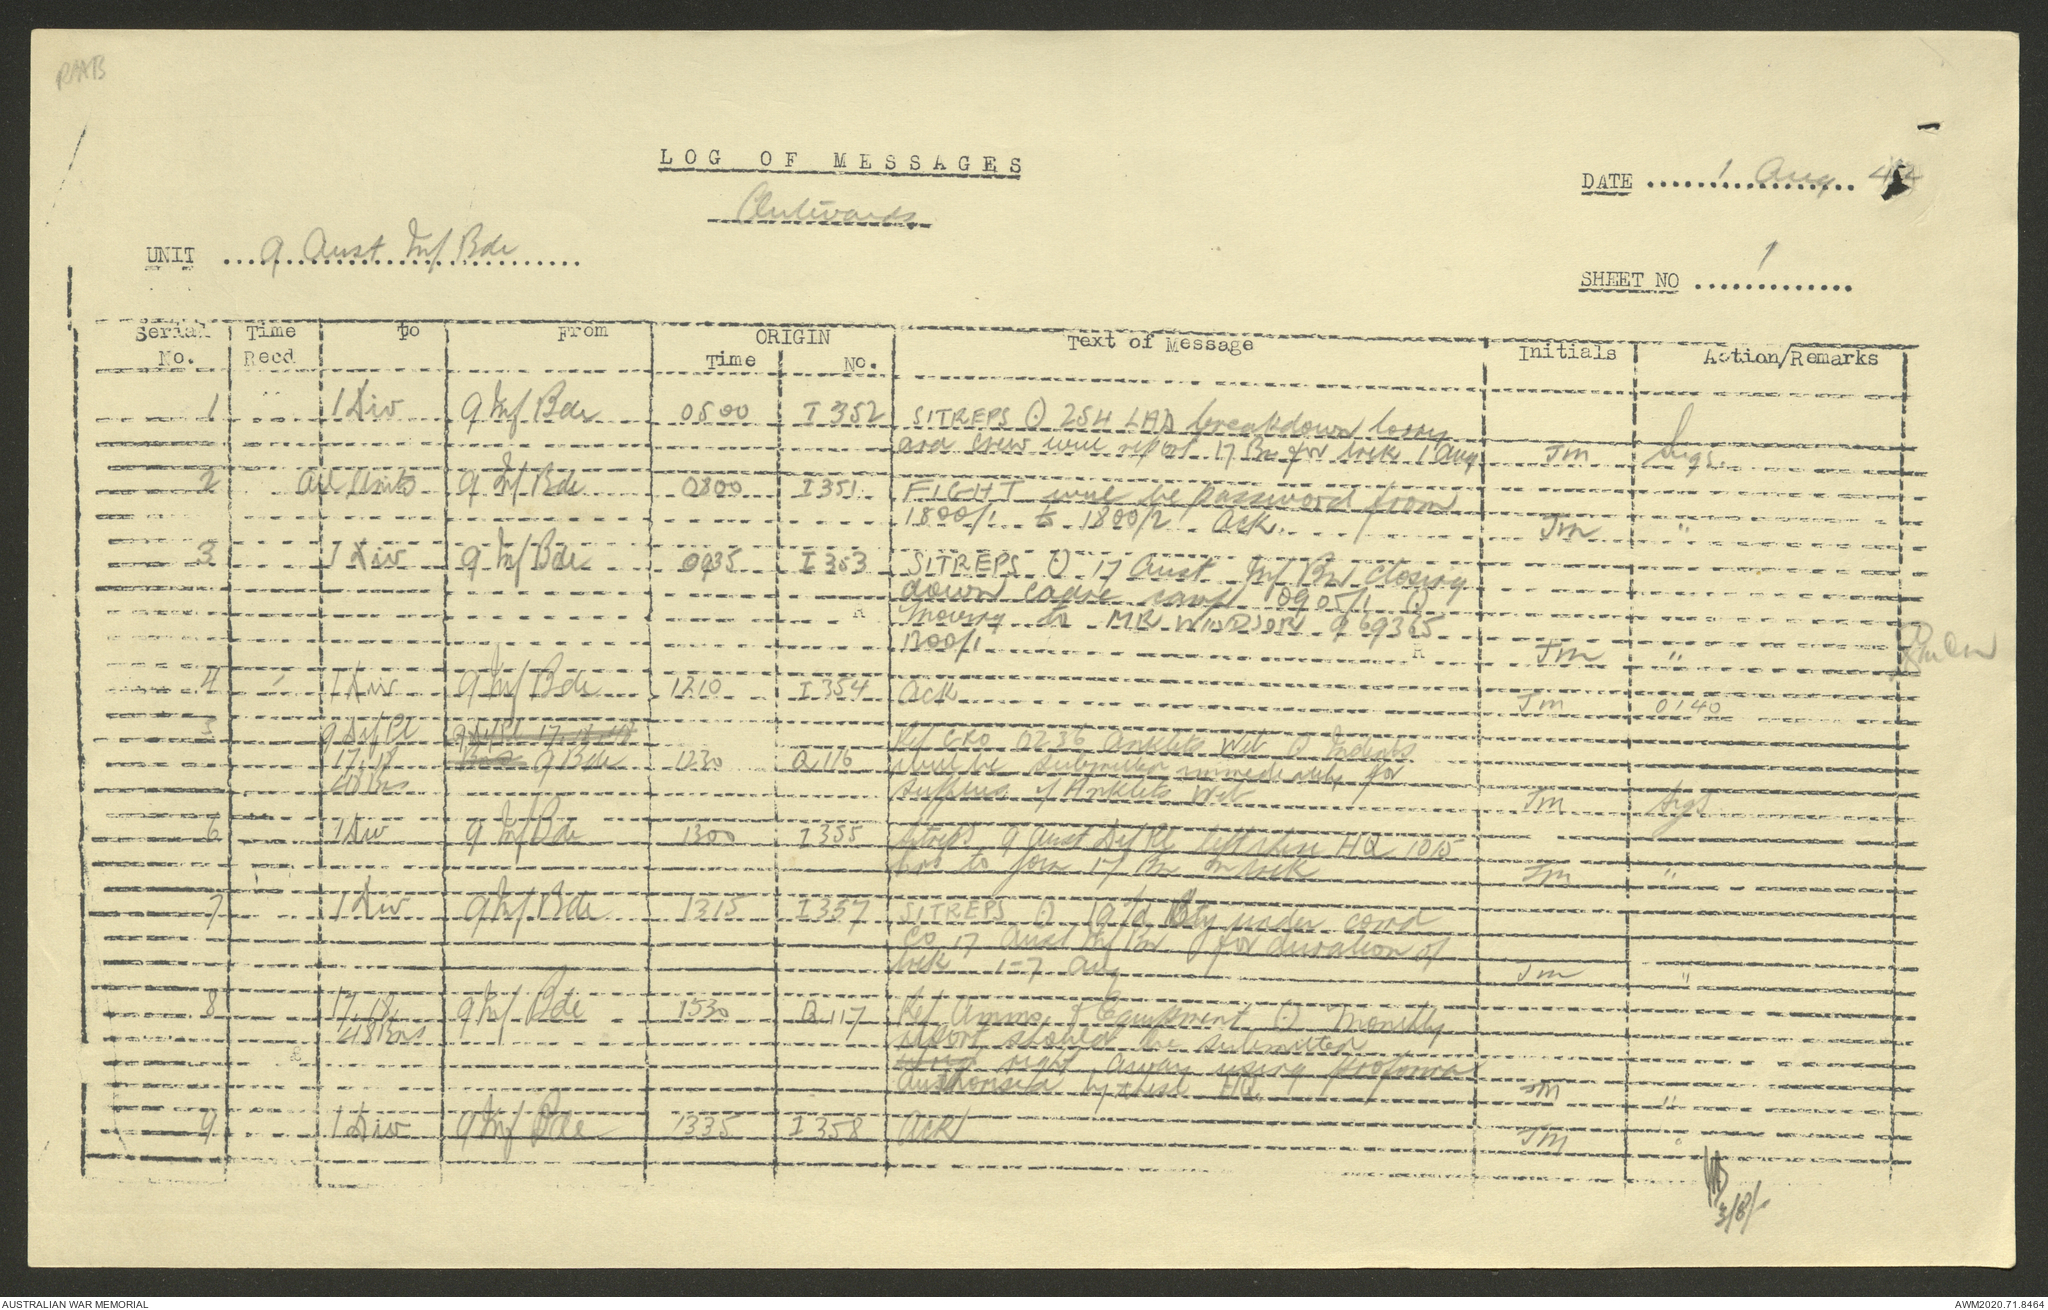 RAAB
LOG OF MESSAGES
Outwards
DATE 1 Aug
UNIT 9 Aust Inf Bde
SHEET NO 1
Serial No. Time Recd to From ORIGIN Time No. Text of Message Initials Action/Remarks
1 1 Div 9 Inf Bde 0800 I 352 SITREPS (.) 254 LAD breakdown lorry
and crew will report 17 Bn for trek 1 Aug Jm Sigs.
2 All Units 9 Inf Bde 0800 I 351 FIGHT will be password from
1800/1 to 1800/2 Ack. Jm "
3 1 Div 9 Inf Bde 0935 I 353 SITREPS (.) 17 Aust Inf Bn closing
down cadre camp 0905/1 (.)
Moving to MR WINDSOR 969365
1200/1 Jm "
4 1 Div 9 Inf Bde 1210 I 354 Ack Jm 0140
5 9 Def Pl Ref GRO 0236 Anklets Web (.) Indents
17, 18 9 Bde 1230 Q 116 will be submitted immediately for
48 Bns surplus of Anklets Web Jm Sigs
6 1 Div 9 Inf Bde 1300 I 355 Sitreps 9 Aust Def Pl left these HQ 1015
hrs to join 17 Bn on trek Jm "
7 1 Div 9 Inf Bde 1315 I 357 SITREPS (.) 19 Fd Bty under comd
CO 17 Aust Inf Bn for duration of
trek 1-7 Aug Jm "
8 17, 18, 9 Inf Bde 1530 Q 117 Ref Ammo & Equipment (.) Monthly
48 Bns report should be submitted
right away using proforma
authorised by these HQ Jm "
9 1 Div 9 Inf Bde 1335 I 358 Ack Jm "
3/8/
AUSTRALIAN WAR MEMORIAL
AWM2020.71.8464